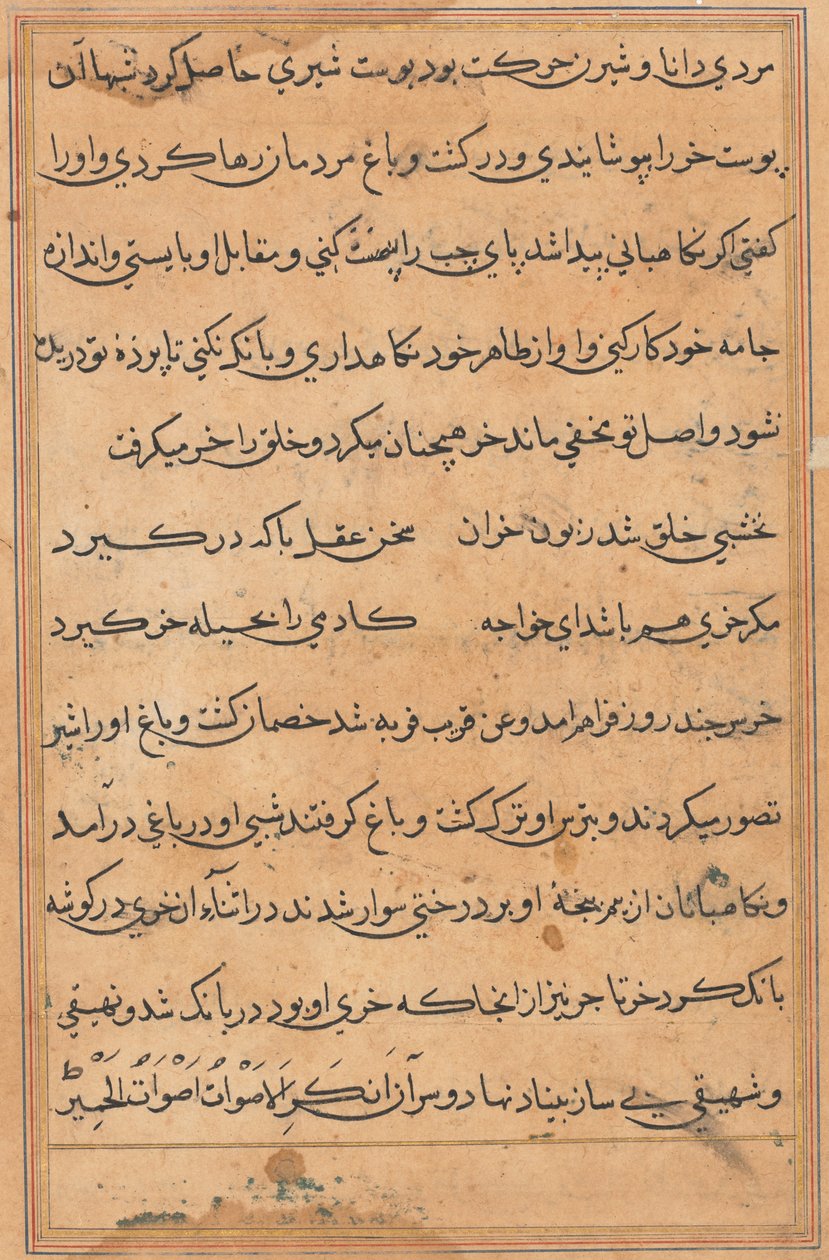 مردي دانا و شيرن حركت بود پوست شيري حاصل كرد شبها آن
پوست خر را بپوشانيدي و در كشت و باغ مردمان رها كردي و او را
كفتي اكر نكاهباني پيدا شد پاي چپ را كني و مقابل او بايستي و اندازه
جامه خود كار كني و از ظاهر خود نكاهداري و بانك نكني تا پرذۀ تو دريده
نشود و اصل تو مخفي ماند خر همچنان ميكرد و خلق را خر ميكرفت
نخشبي خلق شد زبون خران سخن عقل با كه در كيرد
مكر خري هم باشد اي خواجه كادمي را بحيله خر كيرد
خر سر چند روز فراهم امد و عن قريب فربه شد خصمان كشت و باغ او را شير
تصور ميكردند و بترس او ترك كشت و باغ كرفتند شبي او در باغي درآمد
و نكاهبانان از بهر پنجۀ او بر درختي سوار شدند در اثنآء ان خري در كوشه
بانك كرد خر تاجر نيز از انجا كه خري او بود در بانك شد و نهيقي
و شهيقي بي ساز بنياد نهاد و سر آن اَنكَرِ الاَصْوَاتُ اَصْوَاتُ الحَمِيرْ